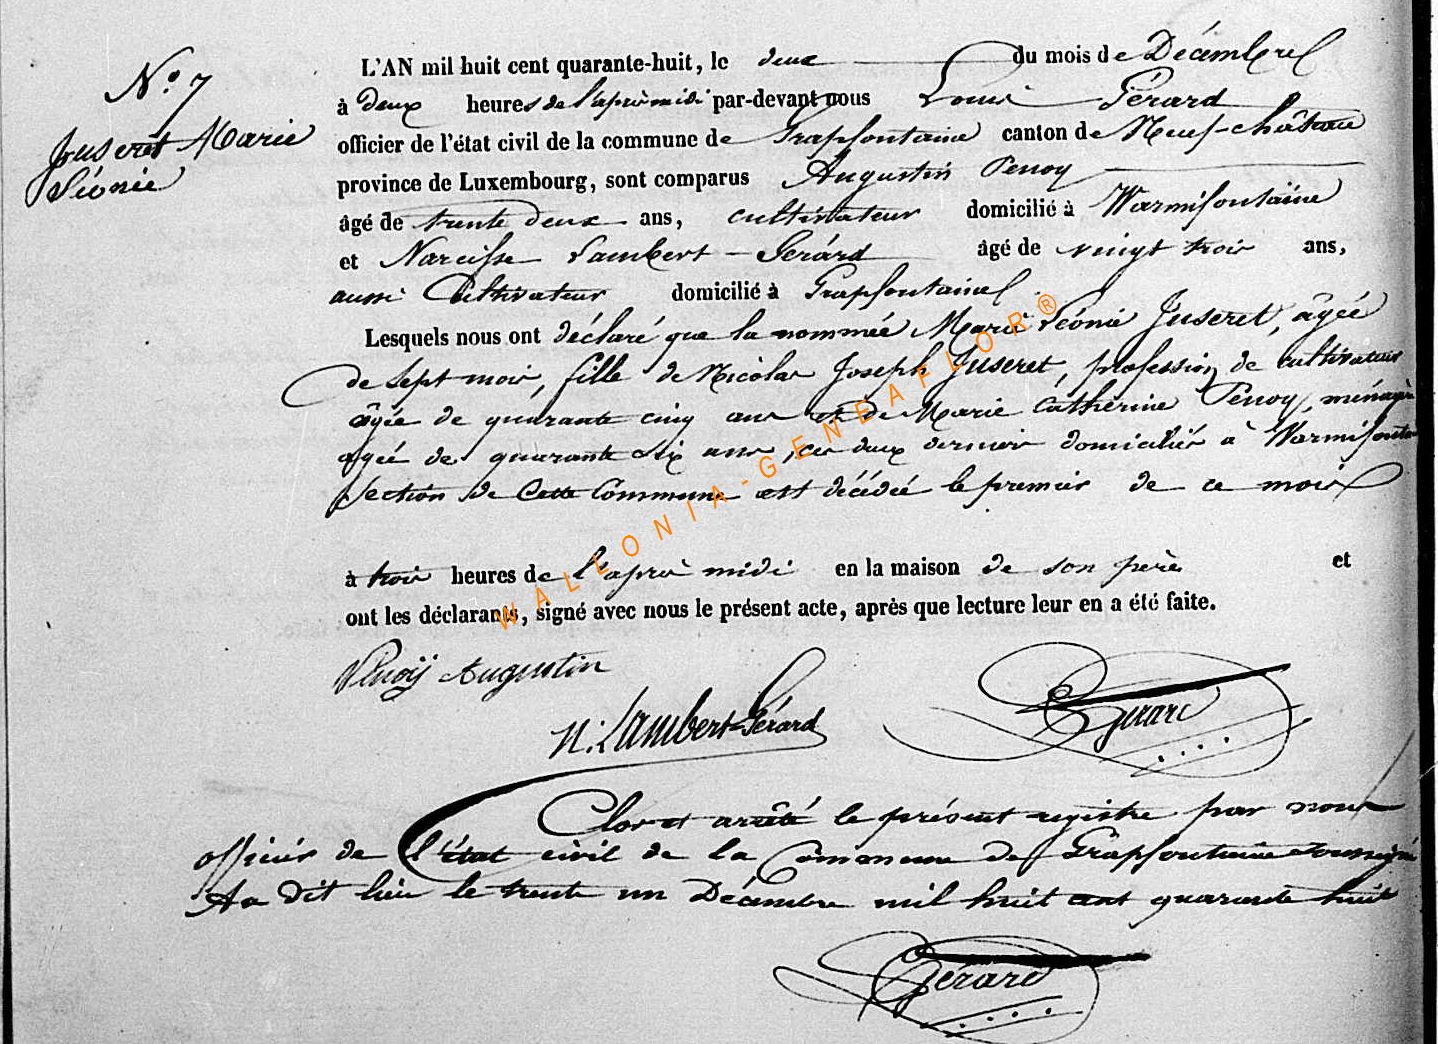 N.° 7
Juseret Marie
Léonie
L'AN mil huit cent quarante-huit, le deux du mois de Décembre
à deux heures de l'après midi par-devant nous Louis Gérard
officier de l'état civil de la commune de Grapfontaine canton de Neuf-château
province de Luxembourg, sont comparus Augustin Penoy
âgé de trente deux ans, cultivateur domicilié à Warmifontaine
et Narcisse Lambert-Gérard âgé de vingt trois ans,
aussi Cultivateur domicilié à Grapfontaine
Lesquels nous ont déclaré que la nommée Marie Léonie Juseret, âgée
de sept mois, fille de Nicolas Joseph Juseret, profession de cultivateur
âgée de quarante cinq ans et de Marie Catherine Penoy, ménagère
agée de quarante six ans, ces deux derniers domiciliés à Warmifontaine
section de cette commune est décédée le premier de ce mois
à trois heures de l'après midi en la maison de son père et
ont les déclarants, signé avec nous le présent acte, après que lecture leur en a été faite.
Penoÿ Augustin
N. Lambert-Gérard
Gérard
Clos et arrêté le présent registre par nous
officier de l'état civil de la Commune de Grapfontaine soussigné
Au dit lieu le trente un Décembre mil huit cent quarante huit
Gérard
WALLONIA-GENEAFLOR®